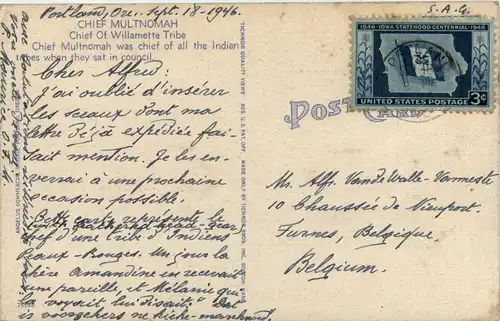 Portland, Ore. Sept. 18-1946.
CHIEF MULTNOMAH
Chief Of Willamette Tribe
Chief Multnomah was chief of all the Indian
tribes when they sat in council.
Cher Alfred:
J'ai oublié d'insérer
les sceaux dont ma
lettre déjà expédiée fai-
sait mention. Je les en-
verrai à une prochaine
occasion possible.
Cette carte représente le
chef d'une tribe d'Indiens
Peaux-Rouges. Un jour la
chère Amandine en recevait
une pareille, et Mélanie qui
la voyait lui disait: "Dat
is voorzekers ne
TICHNOR QUALITY VIEWS
REG. U. S. PAT. OFF.
MADE ONLY BY TICHNOR BROS., INC., BOSTON, MASS.
POST CARD
S.A.G.
1846-IOWA STATEHOOD CENTENNIAL-1946
UNITED STATES POSTAGE 3¢
Mr. Alfr. Van de Walle-Vermeste
10 Chaussée de Nieuport.
Furnes, Belgique.
Belgium.